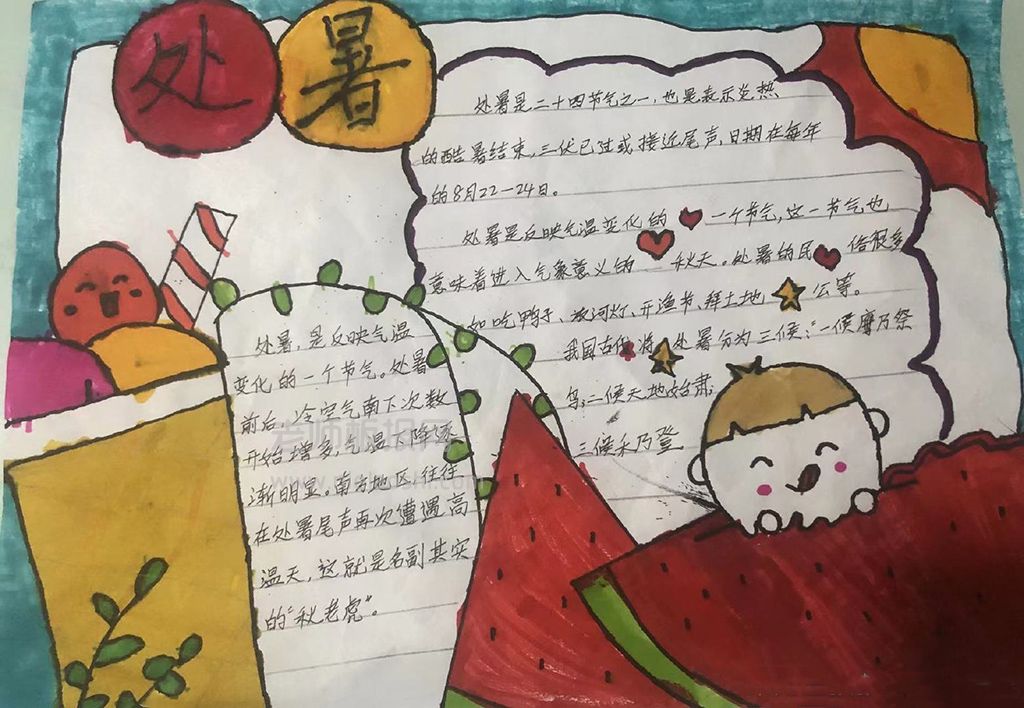 处暑
处暑是二十四节气之一，也是表示炎热
的酷暑结束，三伏已过或接近尾声，日期在每年
的8月22－24日。
处暑是反映气温变化的一个节气，这一节气也
意味着进入气象意义的秋天。处暑的民俗很多
如吃鸭子、放河灯、开渔节、拜土地公等。
我国古代将处暑分为三候："一候鹰乃祭
鸟；二候天地始肃；
三候禾乃登
处暑，是反映气温
变化的一个节气。处暑
前后，冷空气南下次数
开始增多，气温下降逐
渐明显。南方地区往往
在处暑尾声再次遭遇高
温天，这就是名副其实
的"秋老虎"。